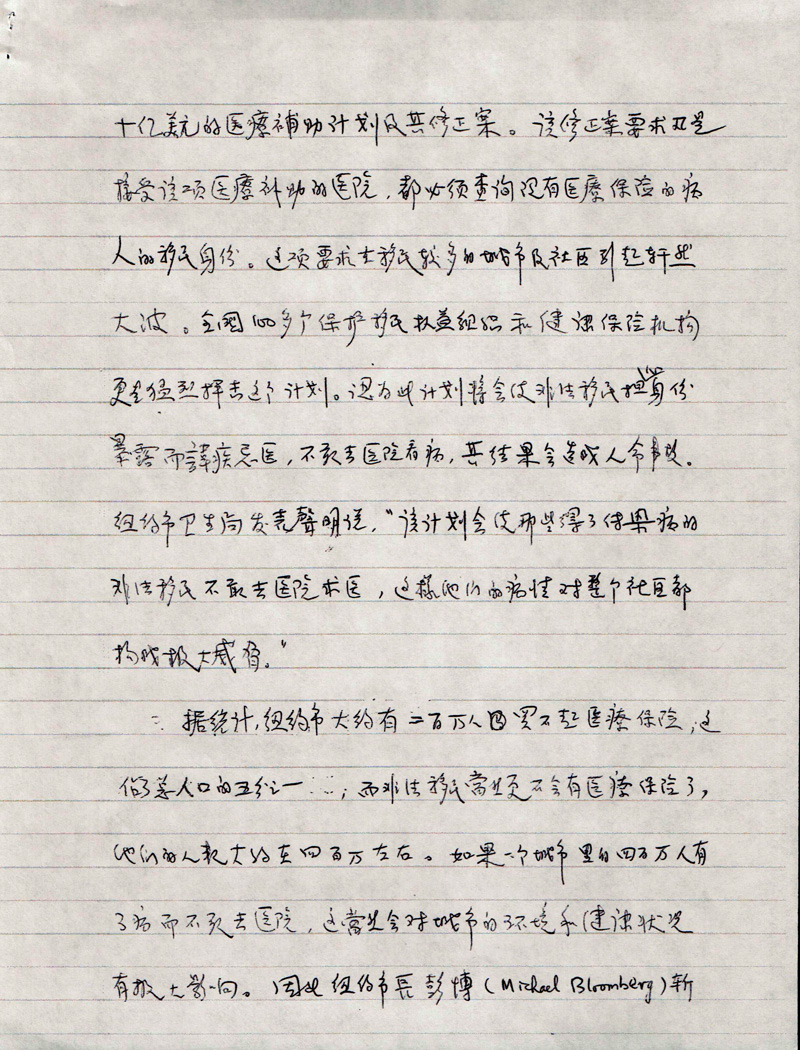 十亿美元的医療補助计划及其修正案。该修正案要求凡是
接受该项医療补助的医院，都必须查询没有医療保险的病
人的移民身份。这项要求在移民较多的城市及社区引起轩然
大波。全国100多个保护移民权益组织和健康保险机构
更是猛烈抨击这个计划。认为此计划将会使非法移民担心身份
暴露而諱疾忌医，不敢去医院看病，其结果会造成人命事故。
纽约市卫生局发表聲明说，“该计划会使那些得了传染病的
非法移民不敢去医院求医，这样他们的病情对整个社区都
构成极大威脅。”
据统计，纽约市大约有二百万人因买不起医療保险，这
佔了总人口的五分之一；而非法移民当然更不会有医療保险了，
他们的人数大约在四百万左右。如果一个城市里的四百万人有
了病而不敢去医院，这当然会对城市的环境和健康状况
有极大影响。因此纽约市長彭博（Michael Bloomberg）新